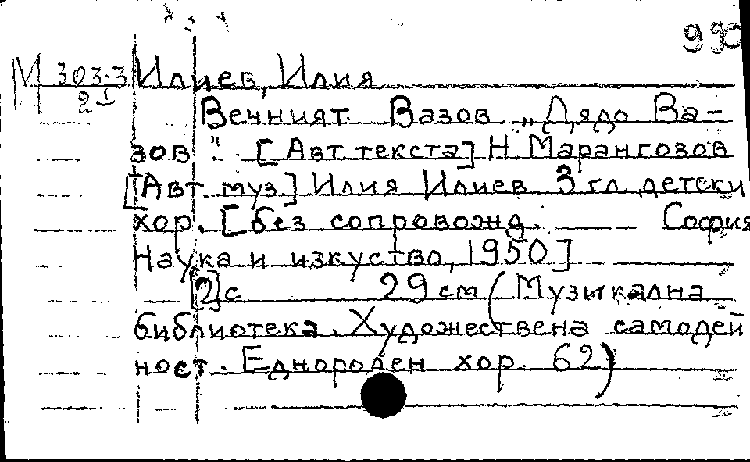 990
М 303.3 Илиев, Илия
2I
Вечният Вазов „Дядо Ва-
зов". [Авт. текста] Н. Марангозов
[Авт. муз.] Илия Илиев. 3 гл. детски
хор. [без сопровожд. София
Наука и изкуство, 1950]
[2] с 29 см (Музикална
библиотека. Художествена самодей
ност. Еднороден хор. 62)